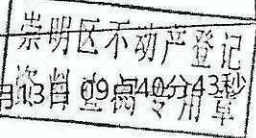 崇明区不动产登记
资料查阅专用章
月13日 09点40分43秒